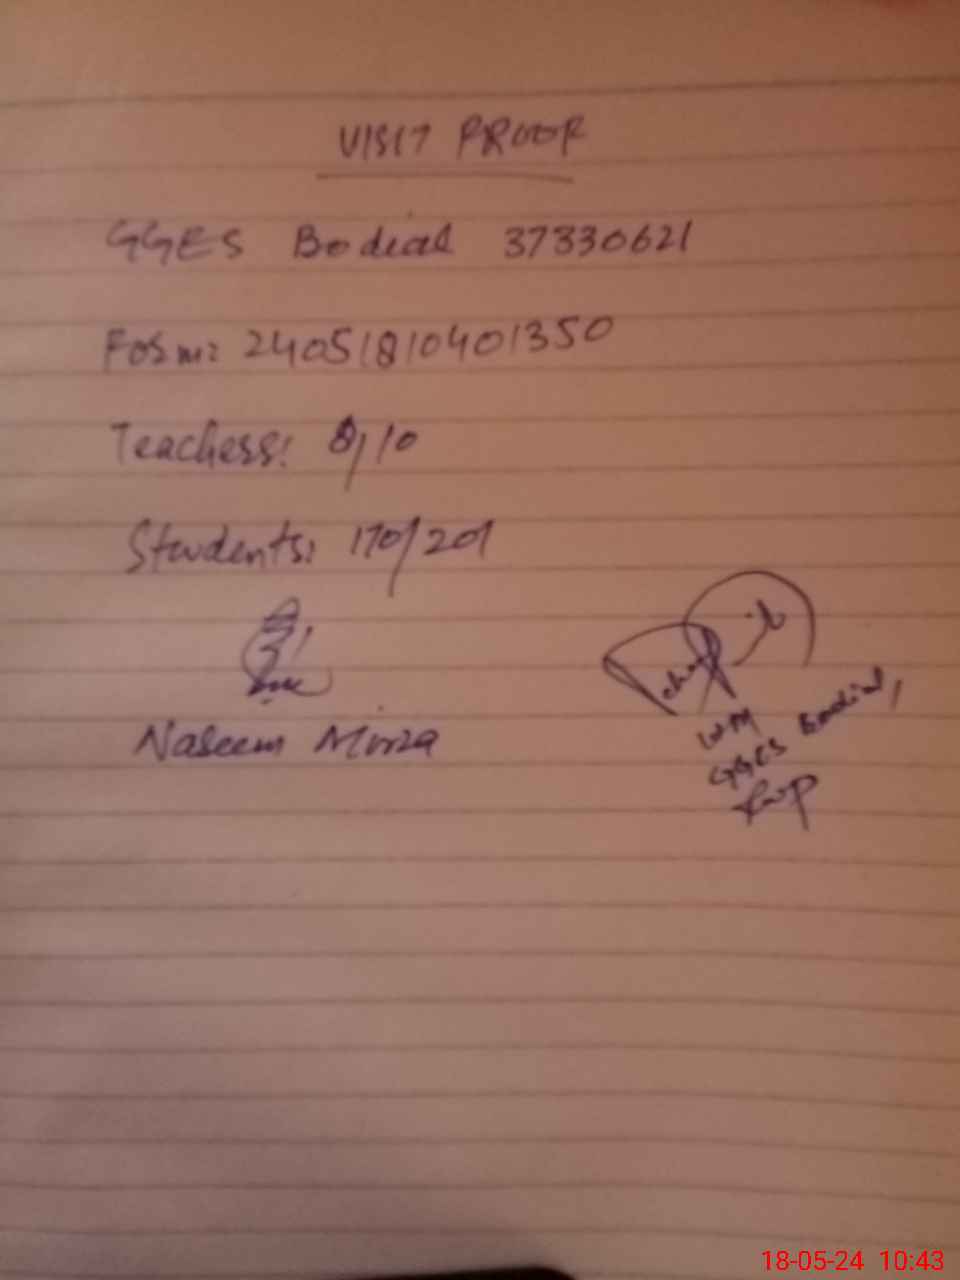 VISIT PROOF
GGES Bodial 37330621
Form: 24051810401350
Teachers: 8/10
Students: 170/201
Naseem Mirza
GGES Bodial,
Rwp
18-05-24 10:43